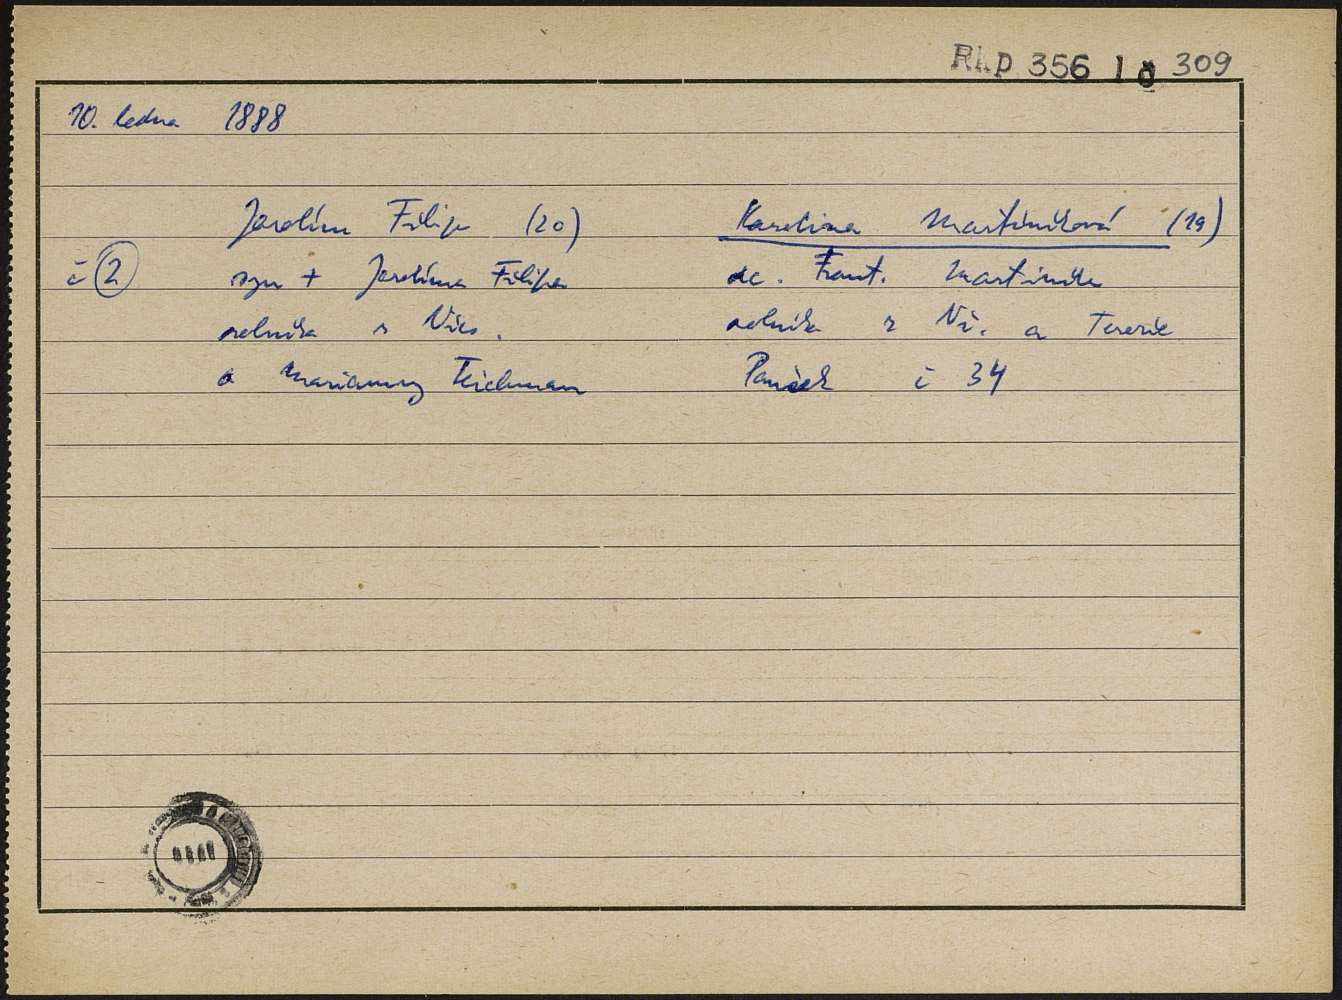 Rkp 356 1 č 309
10. ledna 1888
Jarolím Filip (20)
č 2 syn + Jarolíma Filipa
rolníka z
a Marianny Teichman
Karolina Martiníková (19)
dc. Frant. Martiníka
rolníka z Nš. a Terezie
č 34